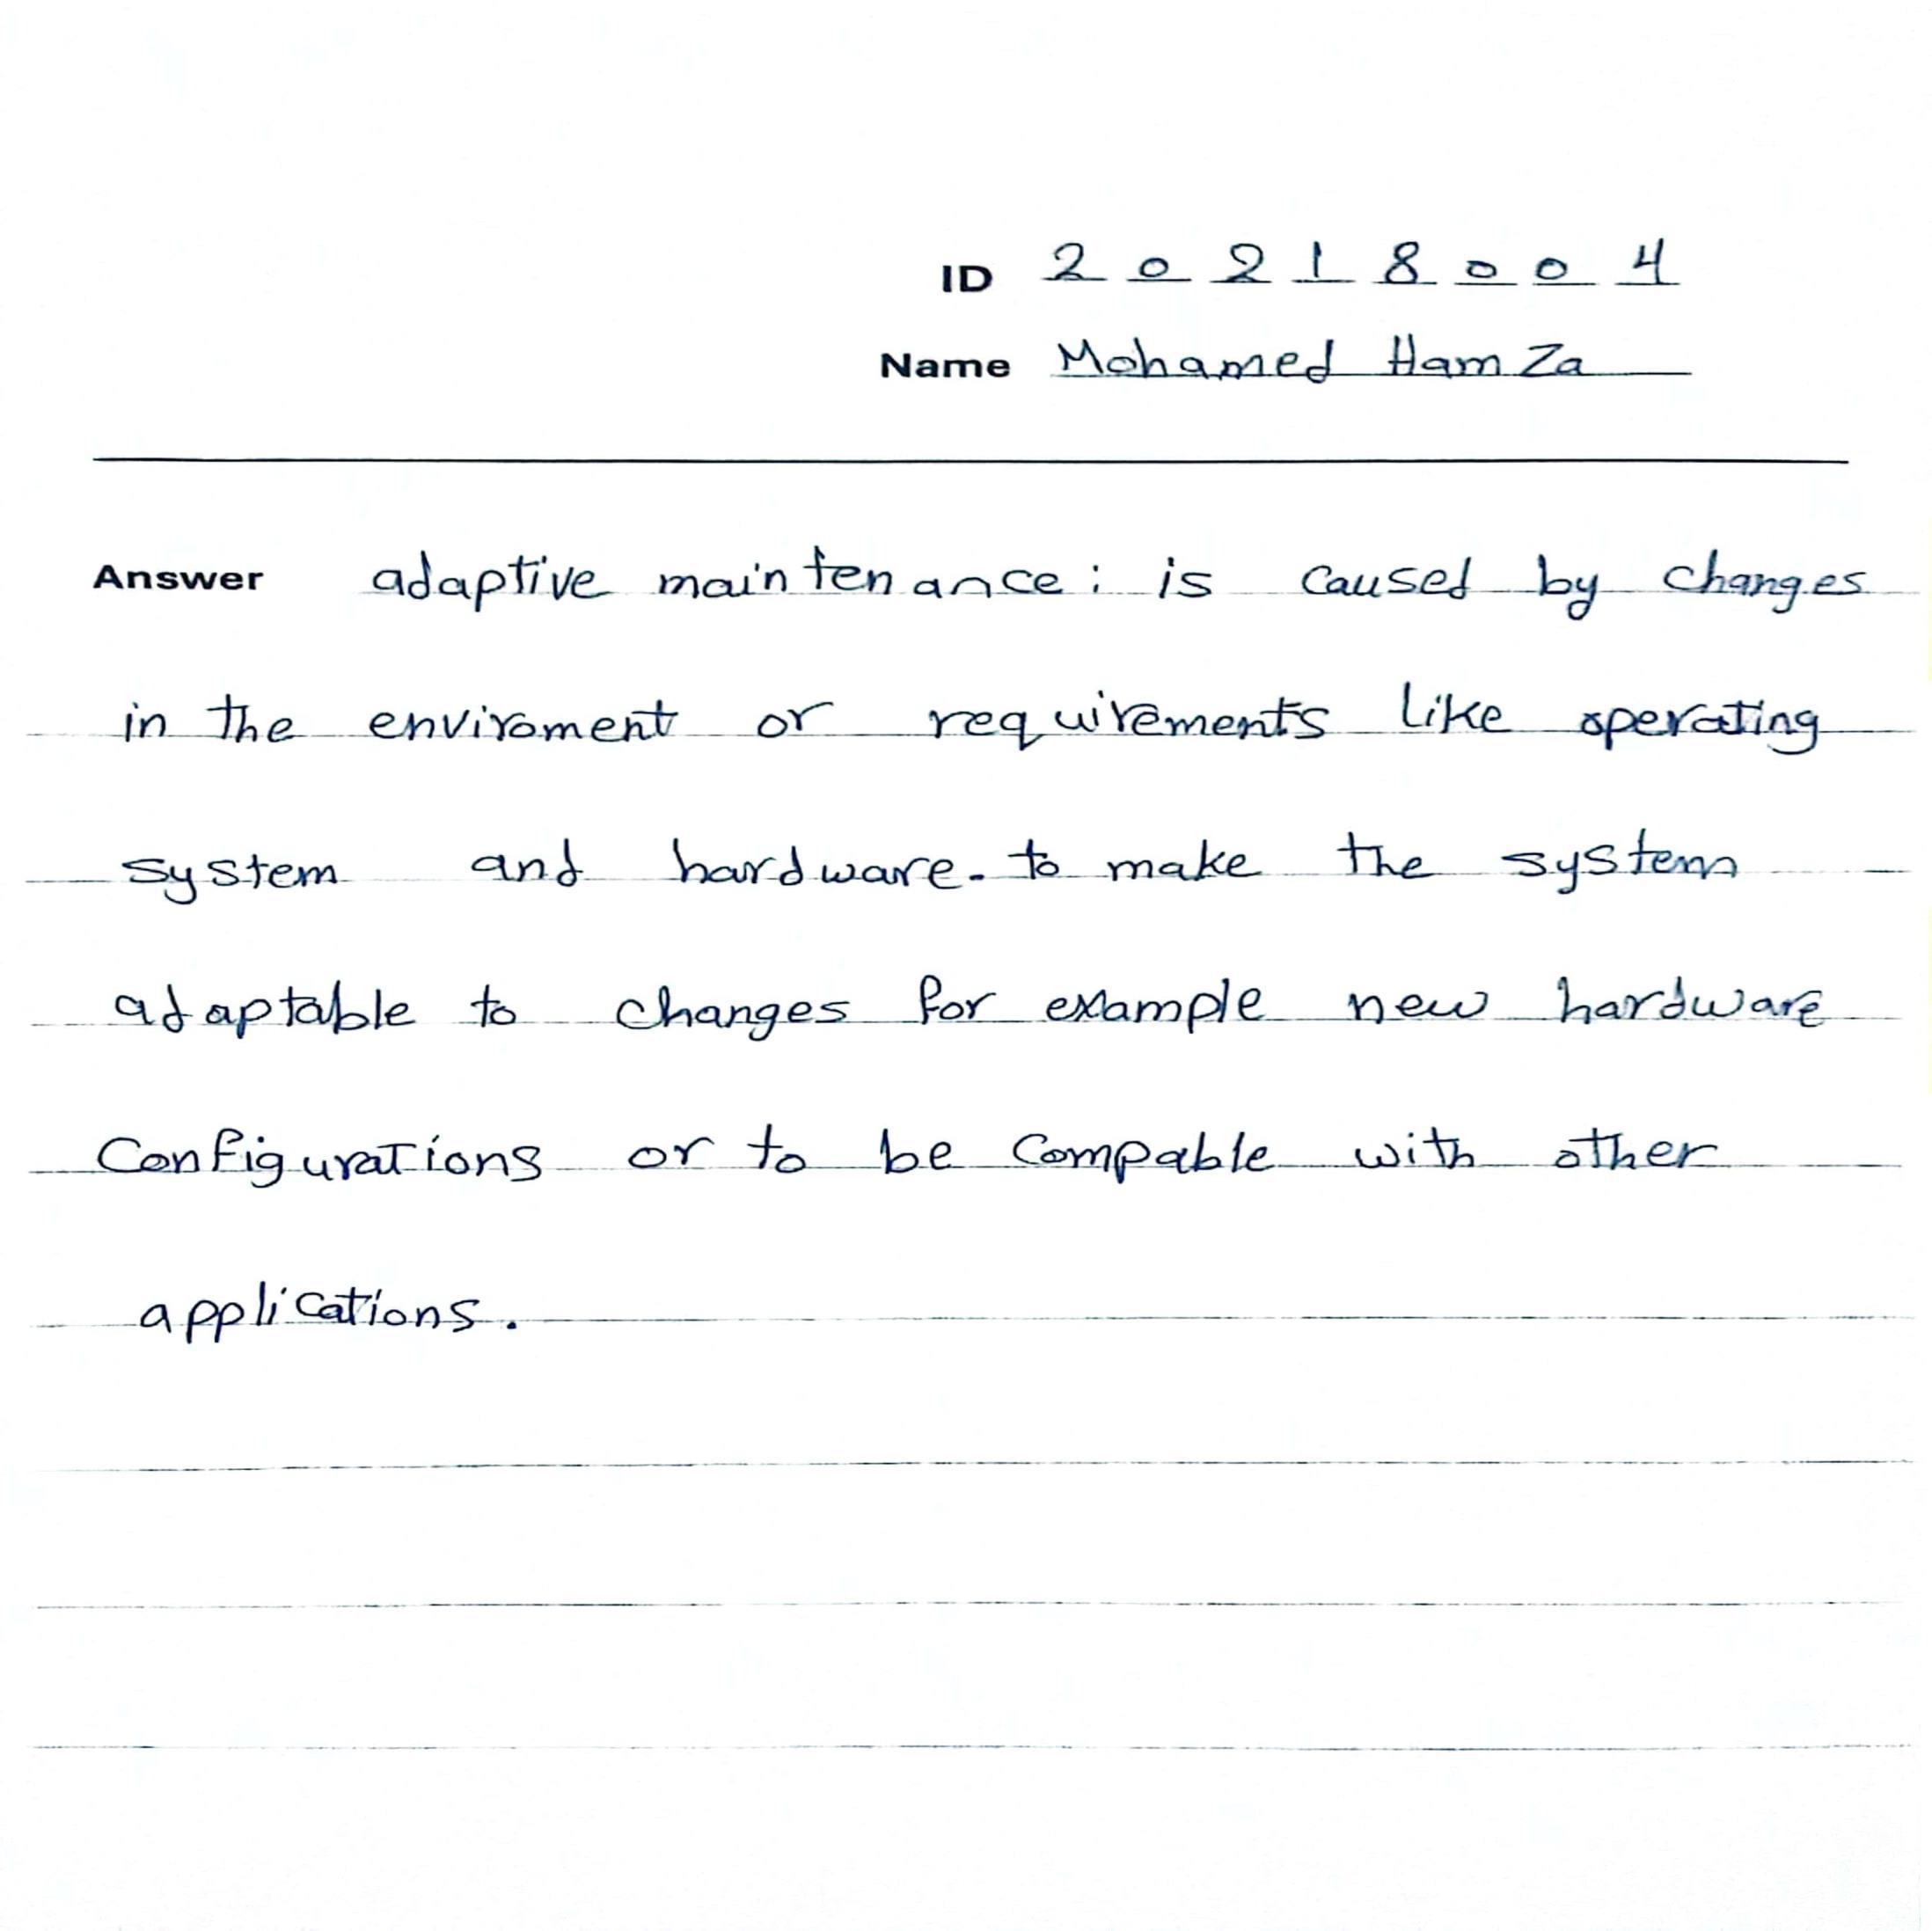 ID 2 0 2 1 8 0 0 4
Name Mohamed Hamza
Answer adaptive maintenance: is caused by changes
in the enviroment or requirements like operating
system and hardware. to make the system
adaptable to changes for example new hardware
Configurations or to be Compable with other
applications.